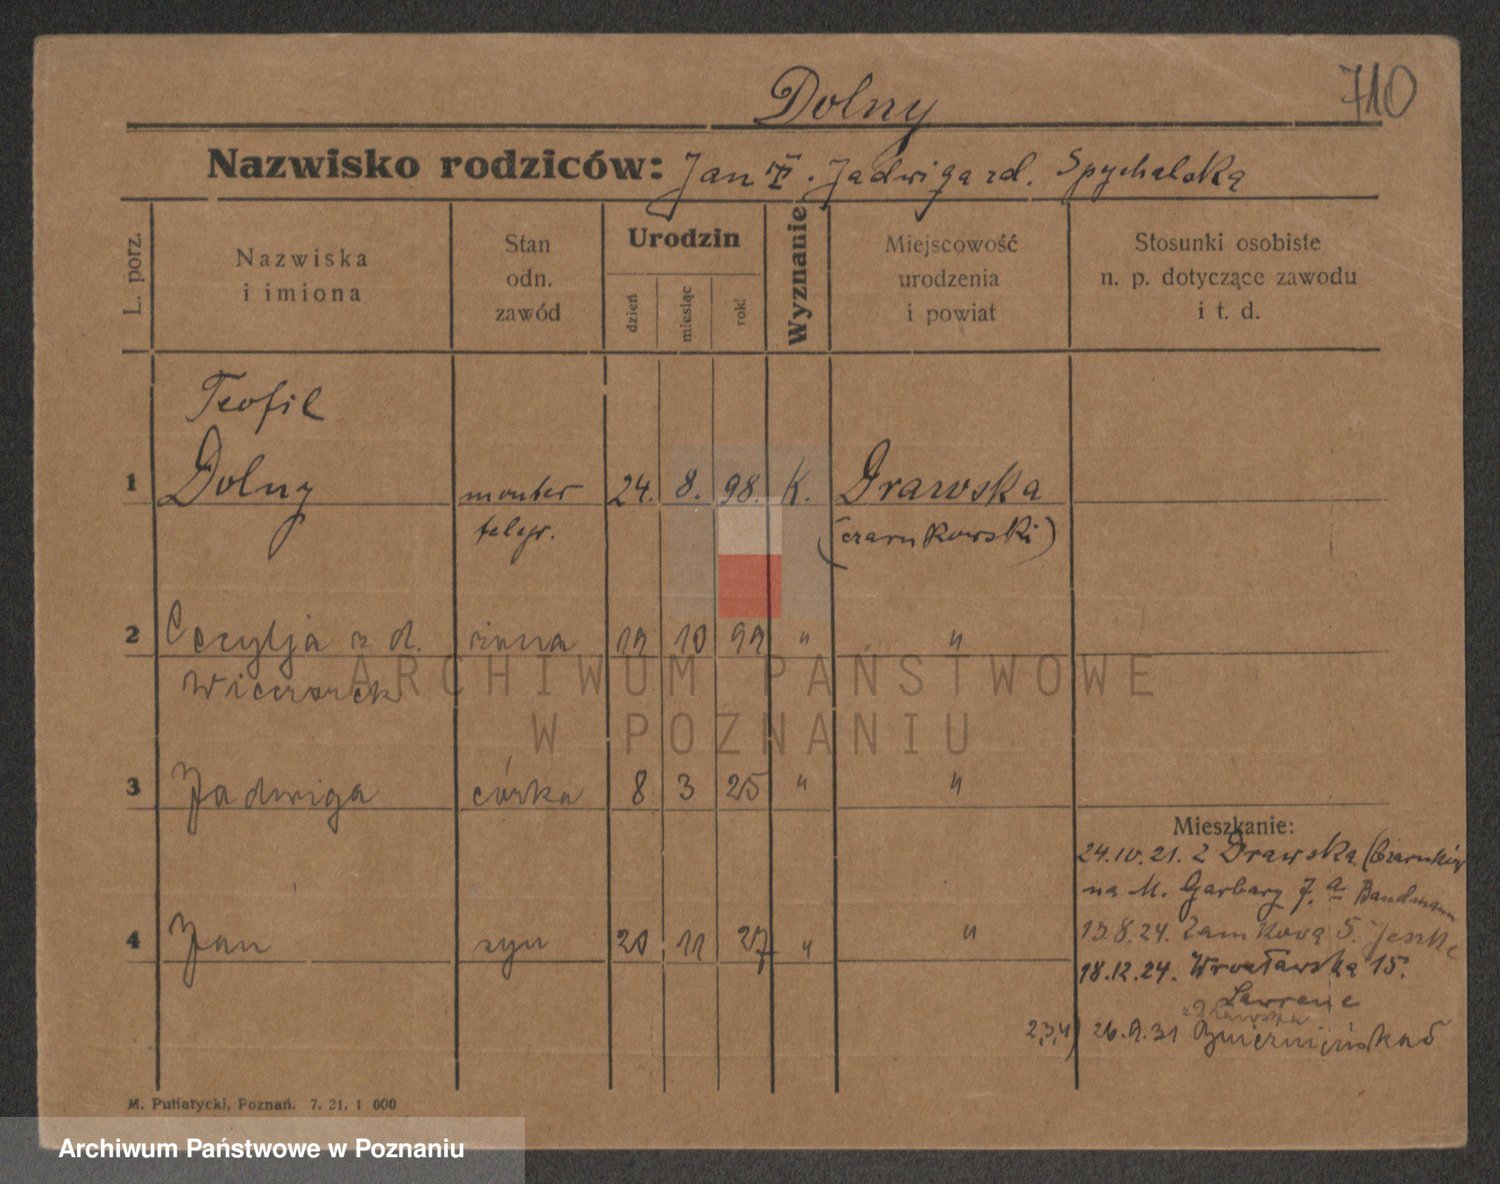 710
Dolny
Nazwisko rodziców: Jan . Jadwiga zd. Spychalska
L. porz.
Nazwiska
i imiona
Stan
odn.
zawód
Urodzin
dzień
miesiąc
rok
Wyznanie
Miejscowość
urodzenia
i powiat
Stosunki osobiste
n. p. dotyczące zawodu
i t. d.
Teofil
1 Dolny monter 24. 8. 98. K. Drawska
telegr. (czarnkowski)
2 Cecylja z d. żona 19 10 99 " "
Wieczorek
3 Jadwiga córka 8 3 25 " "
Mieszkanie:
24.10.21. z Drawska (Czarnków
na M. Garbary 7. a Bandmann
4 Jan syn 20 11 27 " "
13.8.24. Zamkową 5. Jeszke
18.12.24. Wrocławską 15.
Lawrenc
z Drawska
2,3,4) 26.9.31
M. Putiatycki, Poznań. 7. 21. 1 000
ARCHIWUM PAŃSTWOWE
W POZNANIU
Archiwum Państwowe w Poznaniu